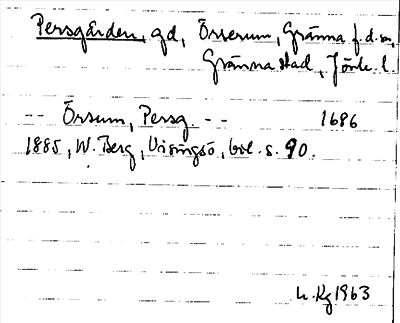 Persgården, gd, Örserum, Gränna f.d. sn,
Gränna stad, Jönk. l.
-- Örsum, Persg. -- 1686
1885, W. Berg, Visingsö, bil. s. 90.
h. Kg 1963